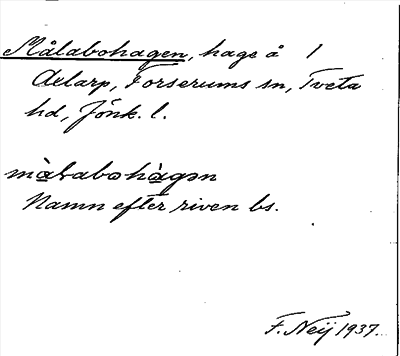 Målabohagen, hage å 1
Aelarp, Forserums sn, Tveta
hd, Jönk. l.
mɑ̀ɫabohɑ̀gən
Namn efter riven bs.
F. Neij 1937.